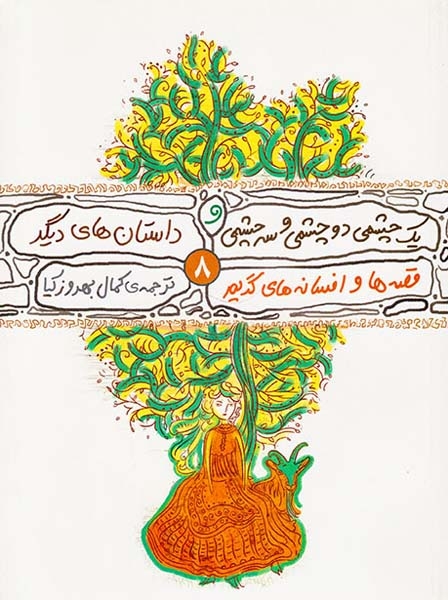 یک چشمی دو چشمی و سه چشمی
و
داستان های دیگر
۸
قصه ها و افسانه های قدیم
ترجمه‌ی کمال بهروز کیا